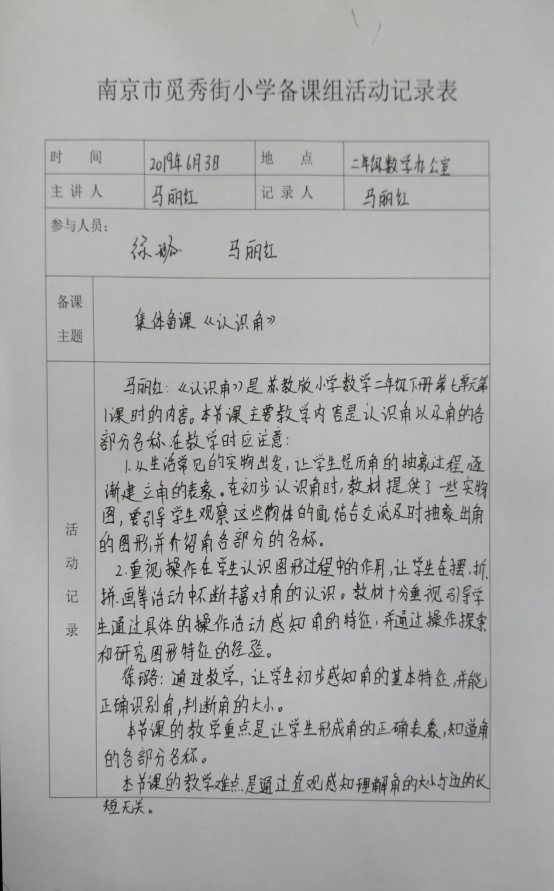 南京市觅秀街小学备课组活动记录表
时 间 2019年6月3日 地 点 二年级数学办公室
主讲人 马丽红 记录人 马丽红
参与人员：
徐璐 马丽红
备课
主题
集体备课《认识角》
活动记录
马丽红：《认识角》是苏教版小学数学二年级下册第七单元第
1课时的内容。本节课主要教学内容是认识角以及角的各
部分名称.在教学时应注意：
1.从生活常见的实物出发，让学生经历角的抽象过程,逐
渐建立角的表象。在初步认识角时，教材提供了一些实物
图，要引导学生观察这些物体的面,结合交流及时抽象出角
的图形,并介绍角各部分的名称。
2.重视操作在学生认识图形过程中的作用，让学生在摆、折、
拼、画等活动中不断丰富对角的认识。教材十分重视引导学
生通过具体的操作活动感知角的特征，并通过操作探索
和研究图形特征的经验。
徐璐：通过教学，让学生初步感知角的基本特征,并能
正确识别角,判断角的大小。
本节课的教学重点是让学生形成角的正确表象,知道角
的各部分名称。
本节课的教学难点是通过直观感知理解角的大小与边的长
短无关。